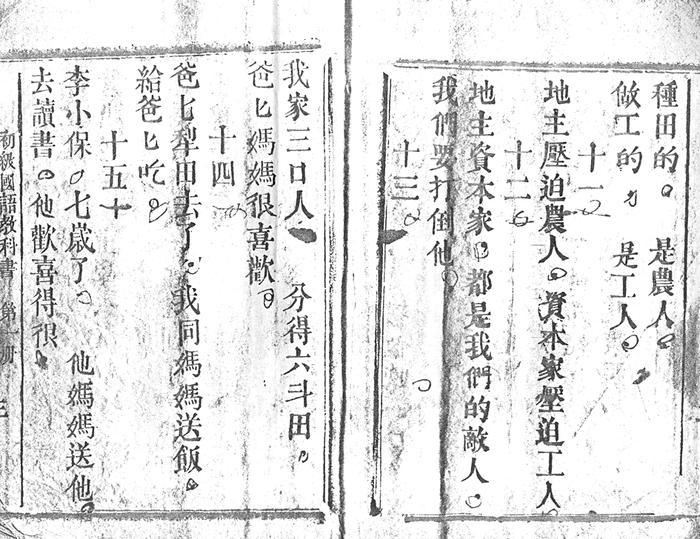 種田的。是農人。
做工的，是工人。
十一
地主壓迫農人。資本家壓迫工人。
十二
地主資本家。都是我們的敵人。
我們要打倒他。
十三
我家三口人　分得六斗田。
爸匕媽媽很喜歡。
十四
爸匕犁田去了。我同媽媽送飯。
給爸匕吃。
十五
李小保。七歲了。他媽媽送他。
去讀書。他歡喜得很。
初級國語教科書　第一冊